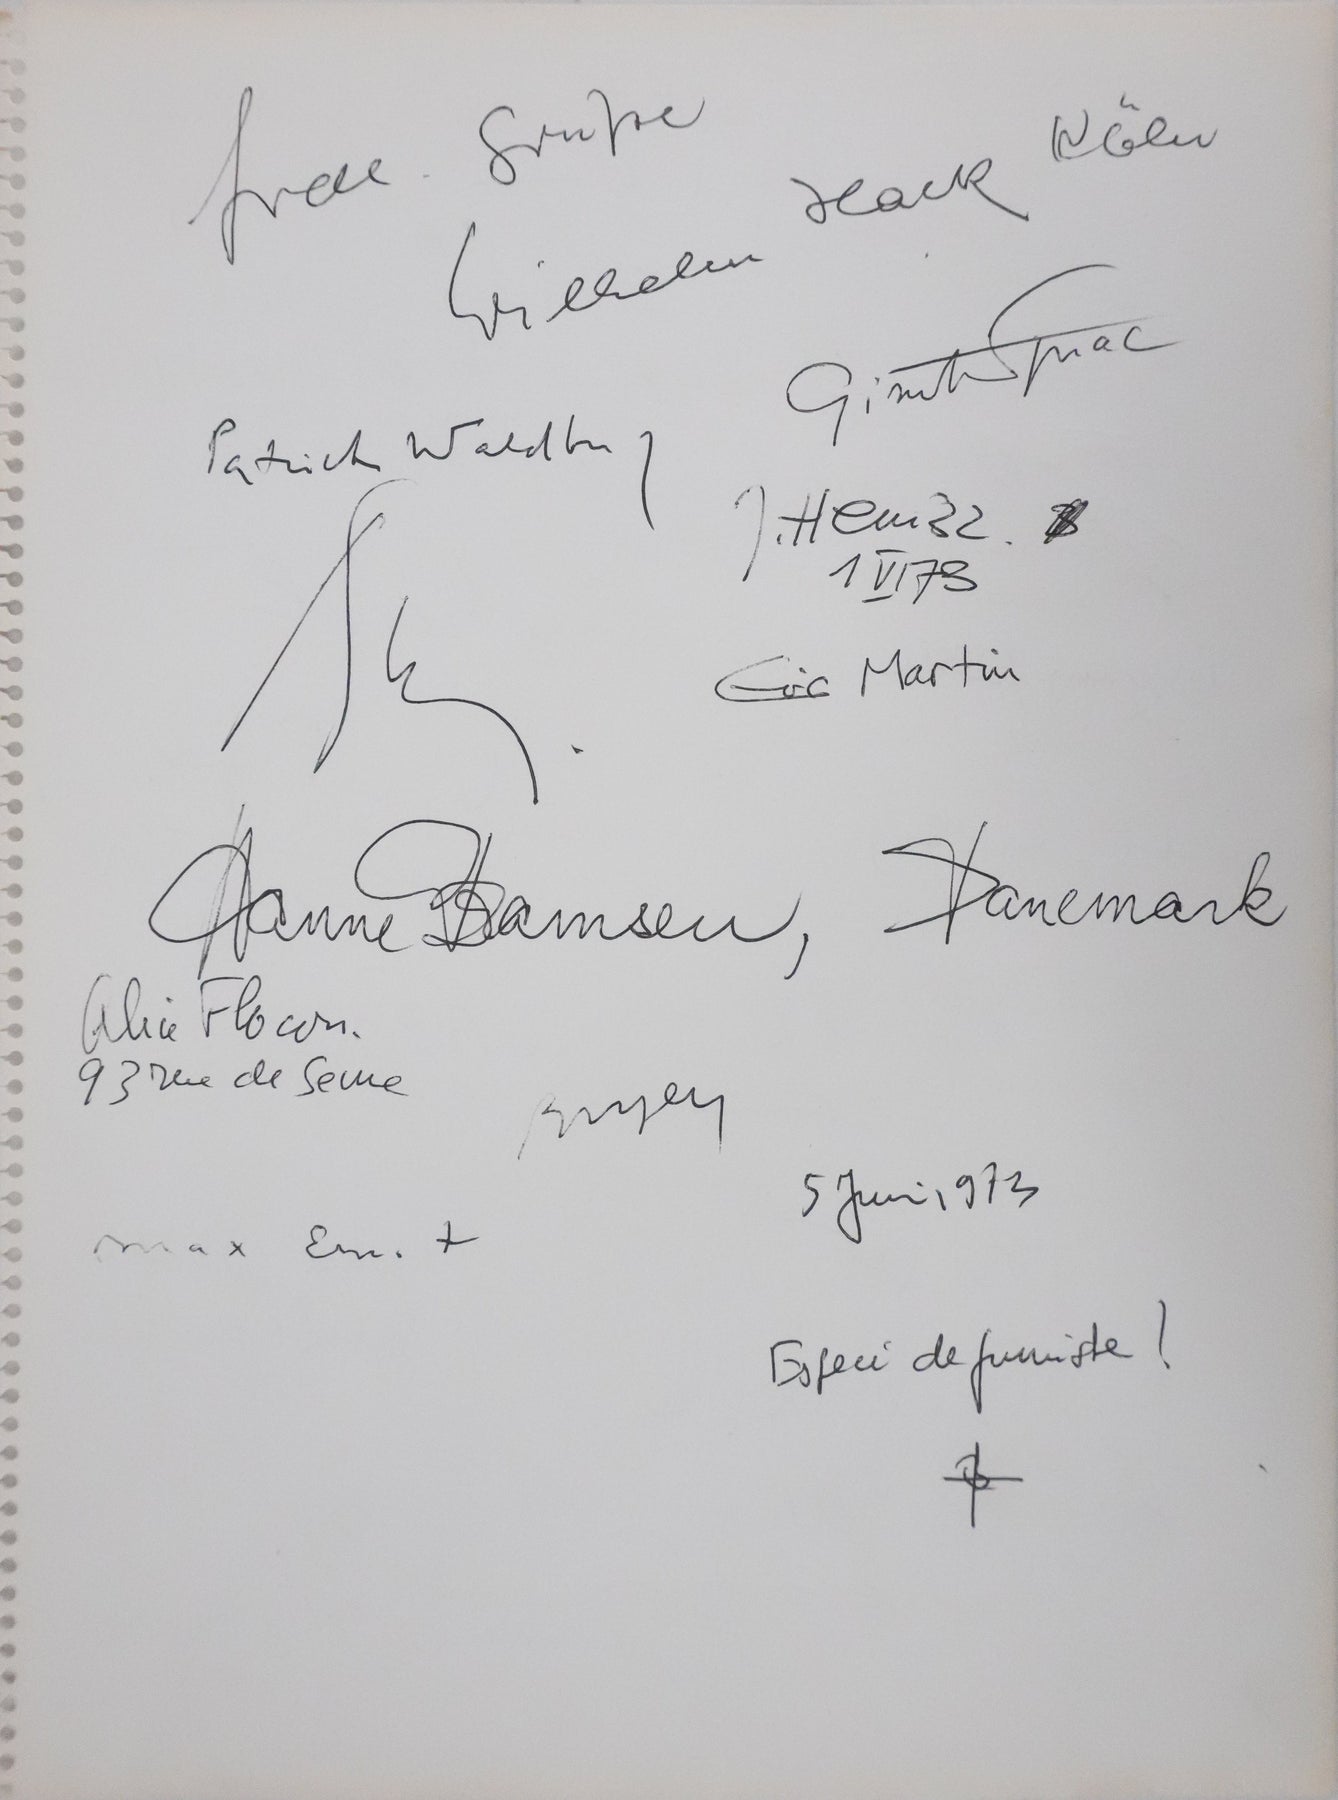 Grüße
Wilhelm Hack Köln
Patrick Waldberg
J. Hem32.
1 VI 73
Eric Martin
Hanne Damsen, Danemark
Alice Flocon.
93 rue de Seine
Bryen
5 Juni 1973
max Ernst
Espece de fumiste !